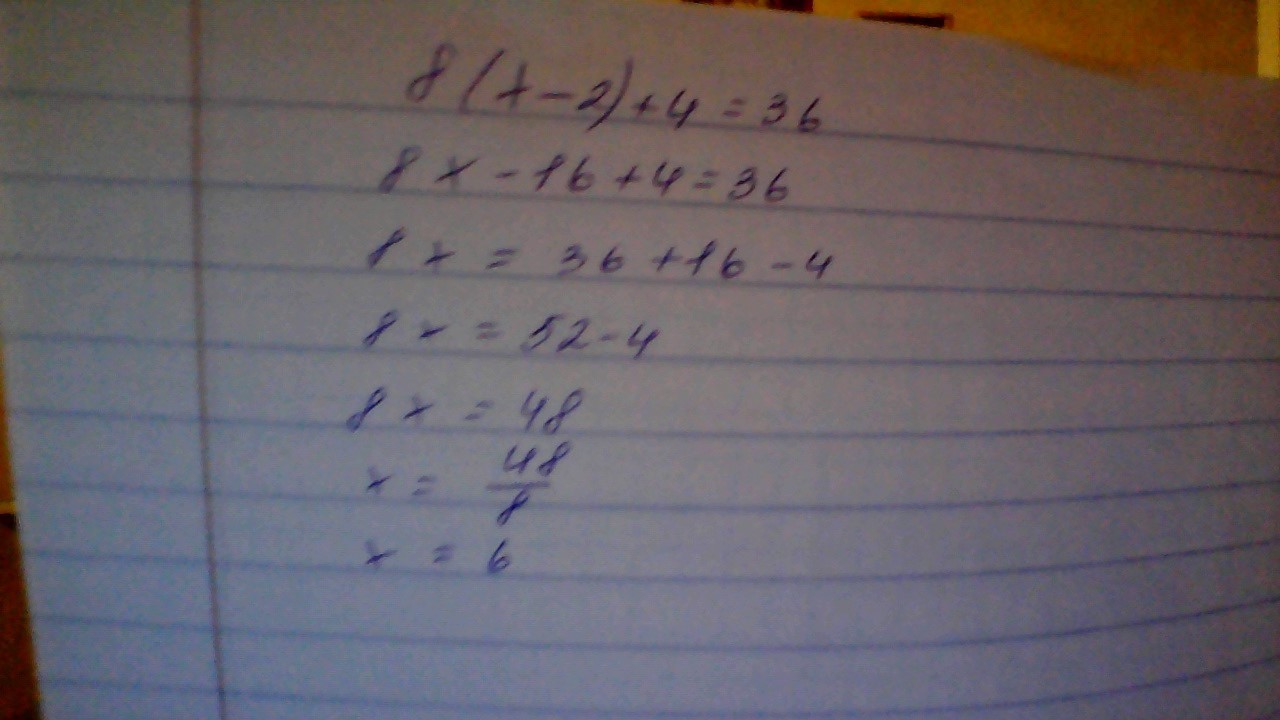 8(x-2)+4=36
8x-16+4=36
8x = 36+16-4
8x = 52-4
8x = 48
x = 48/8
x = 6